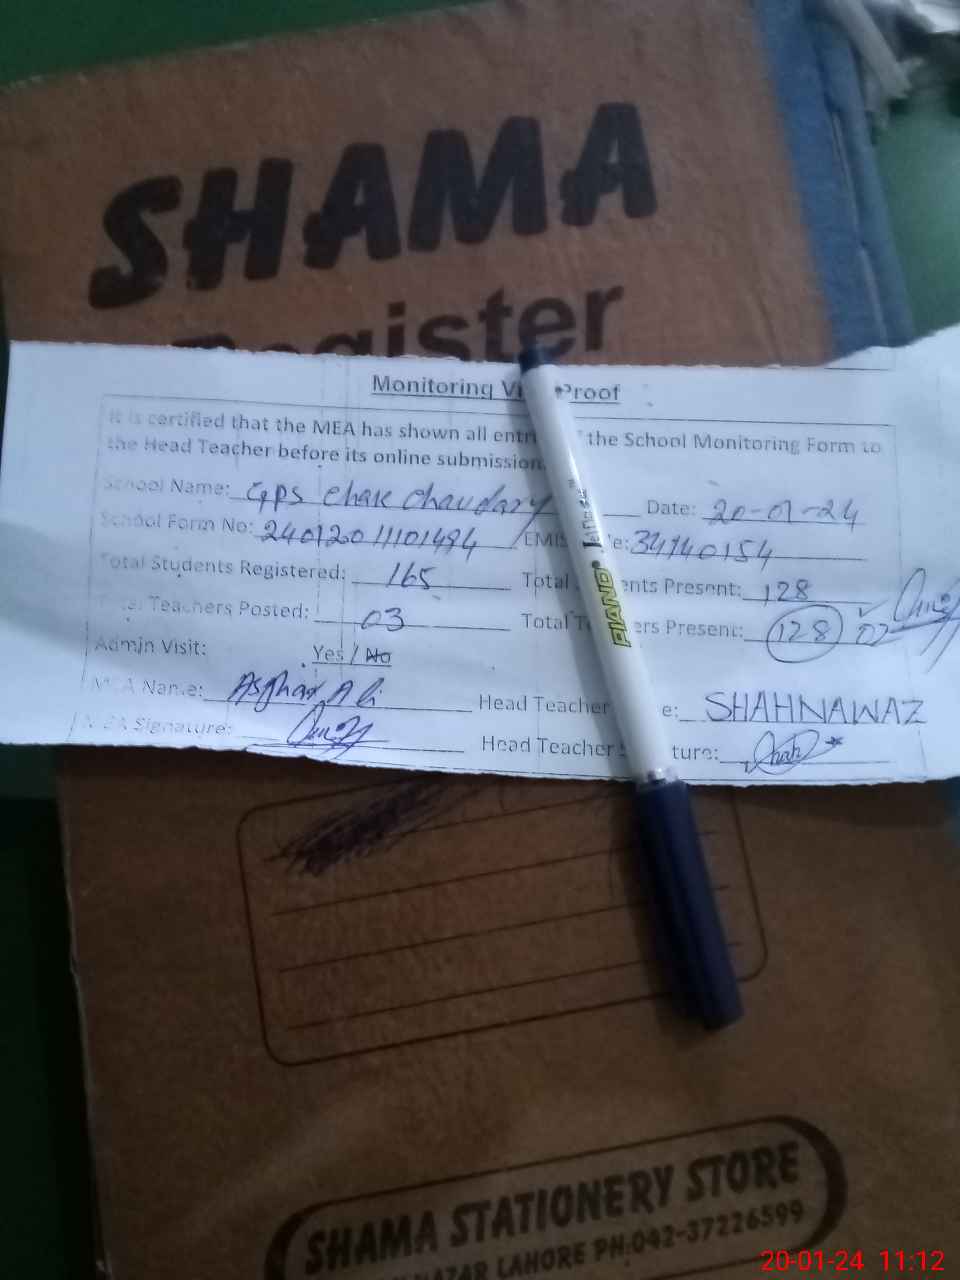 SHAMA
Register
Monitoring Vi Proof
It is certified that the MEA has shown all entri the School Monitoring Form to
the Head Teacher before its online submission.
School Name: GPS Chak Chaudary Date: 20-01-24
School Form No: 24012011101494 EMIS e: 34140154
Total Students Registered: 165 Total ents Present: 128
Total Teachers Posted: 03 Total Te ers Present: 128 02
Admin Visit: Yes / No
MEA Name: Asghar Ali Head Teacher e: SHAHNAWAZ
MEA Signature: Head Teacher S ture:
PIANO
SHAMA STATIONERY STORE
LAHORE PH:042-37226599
20-01-24 11:12